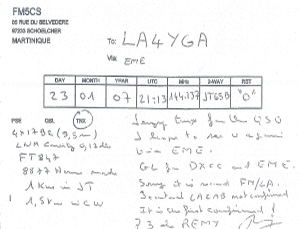 FM5CS
65 RUE DU BELVEDERE
97233 SCHOELCHER
MARTINIQUE
To: LA4YGA
Via: EME
DAY MONTH YEAR UTC MHz 2-WAY RST
23 01 07 21:13 144.137 JT65B "O"
PSE QSL TNX
4x17B2 (9,5m)
FT847
8877 Home made
1kw in JT
1,5kw in CW
for the QSO
I hope to see u again
via EME.
GL for DXCC and EME.
Sorry it is second FM/LA.
not confirmed
It is the first confirmed!
73 de REMY